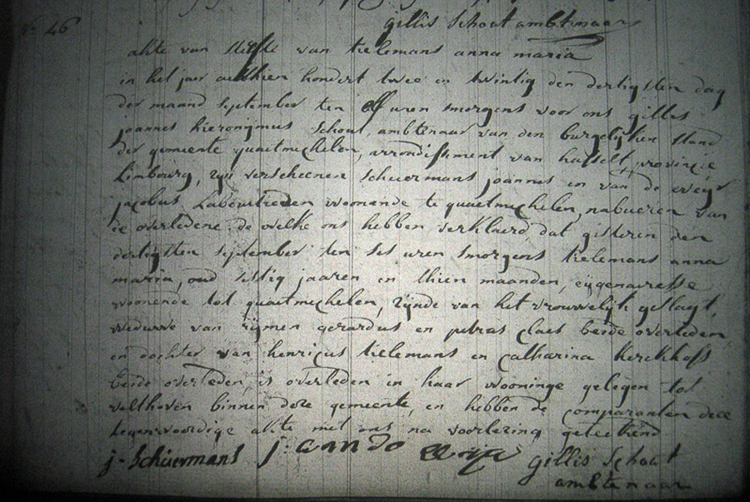 gillis Schoot ambtenaar
No 46
akte van sterfte van tielemans anna maria
in het jaar achthien hondert twee en twintig den dertigsten dag
der maand september ten elf uren smorgens voor ons gilles
joannes hieronijmus Schoot, ambtenaar van den burgelijken stand
der gemeente quaetmechelen, arrondissment van hasselt, provincie
Limbourg, zijn verscheenen Scheurmans joannes en van de
jacobus, Labeurlieden woonende te quaetmechelen, nabueren van
de overledene, de welke ons hebben verklaerd dat gisteren den
dertigsten september ten ses uren smorgens tielemans anna
maria, oud sestig jaaren en thien maanden, eijgenaeresse
woonende tot quaetmechelen, zijnde van het vrouwelijk geslagt,
weduwe van rijmen gerardus en petrus claes beide overleden
en dochter van henricus tielemans en Catharina Kerckhofs
beide overleden, is overleden in haar wooninge gelegen tot
velthoven binnen deze gemeente, en hebben de comparanten deze
tegenwoordige akte met ons na voorlezing geteekend
j. Scheurmans j. van do
gillis Schoot
ambtenaar